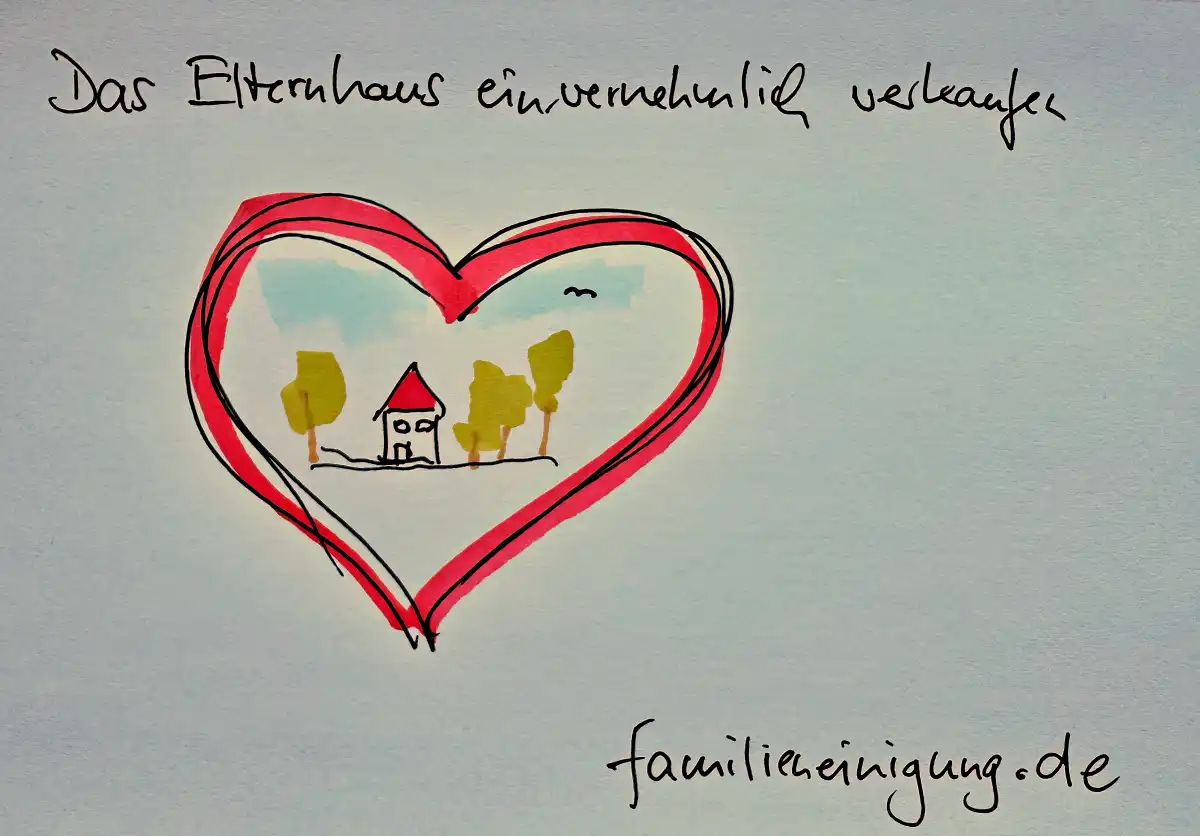 Das Elternhaus einvernehmlich verkaufen
familieneinigung.de